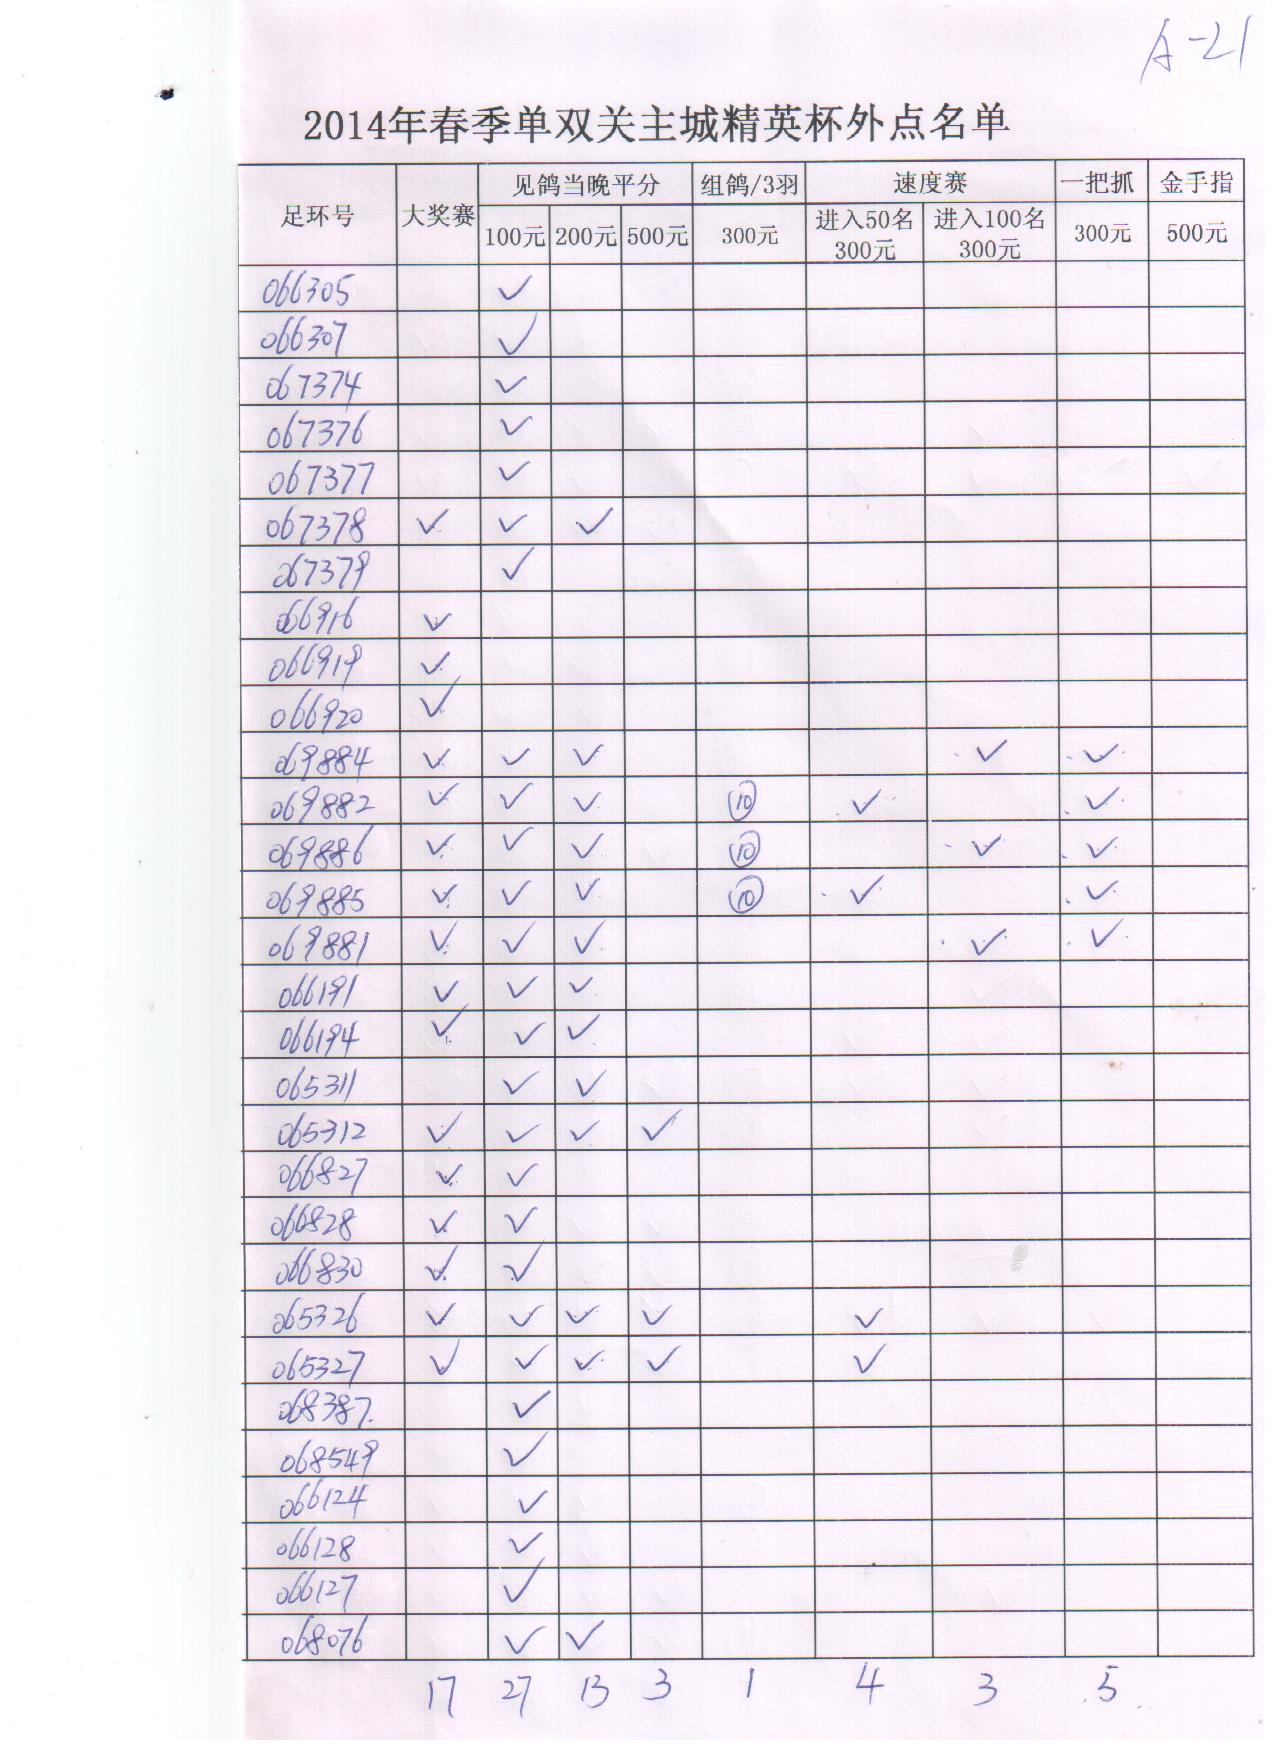 A-21
2014年春季单双关主城精英杯外点名单
足环号 大奖赛 见鸽当晚平分 组鸽/3羽 速度赛 一把抓 金手指
100元 200元 500元 300元 进入50名 300元 进入100名 300元 300元 500元
066305 ✓
066307 ✓
067374 ✓
067376 ✓
067377 ✓
067378 ✓ ✓ ✓
067379 ✓
066916 ✓
066919 ✓
066920 ✓
069884 ✓ ✓ ✓ ✓ ✓
069882 ✓ ✓ ✓ ⑩ ✓ ✓
069886 ✓ ✓ ✓ ⑩ ✓ ✓
069885 ✓ ✓ ✓ ⑩ ✓ ✓
069881 ✓ ✓ ✓ ✓ ✓
066191 ✓ ✓ ✓
066194 ✓ ✓ ✓
065311 ✓ ✓
065312 ✓ ✓ ✓ ✓
066827 ✓ ✓
066828 ✓ ✓
066830 ✓ ✓
065326 ✓ ✓ ✓ ✓ ✓
065327 ✓ ✓ ✓ ✓ ✓
068387 ✓
068549 ✓
066124 ✓
066128 ✓
066127 ✓
068076 ✓ ✓
17 27 13 3 1 4 3 5